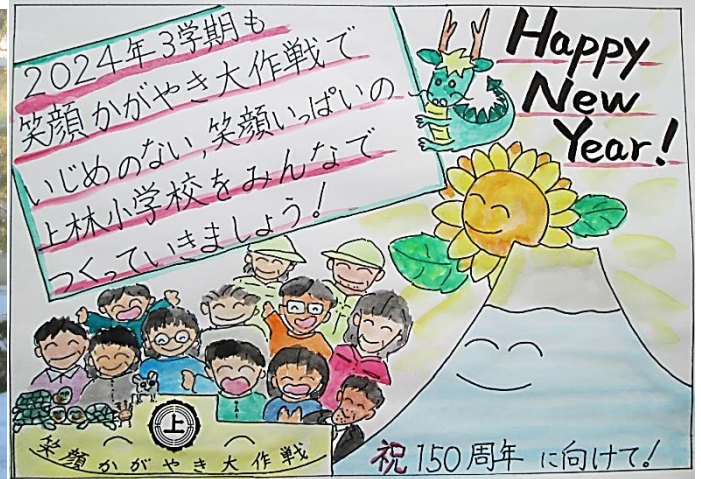 2024年3学期も
笑顔かがやき大作戦で
いじめのない,笑顔いっぱいの
上林小学校をみんなで
つくっていきましょう!
Happy
New
Year!
上
笑顔かがやき大作戦
祝150周年に向けて!